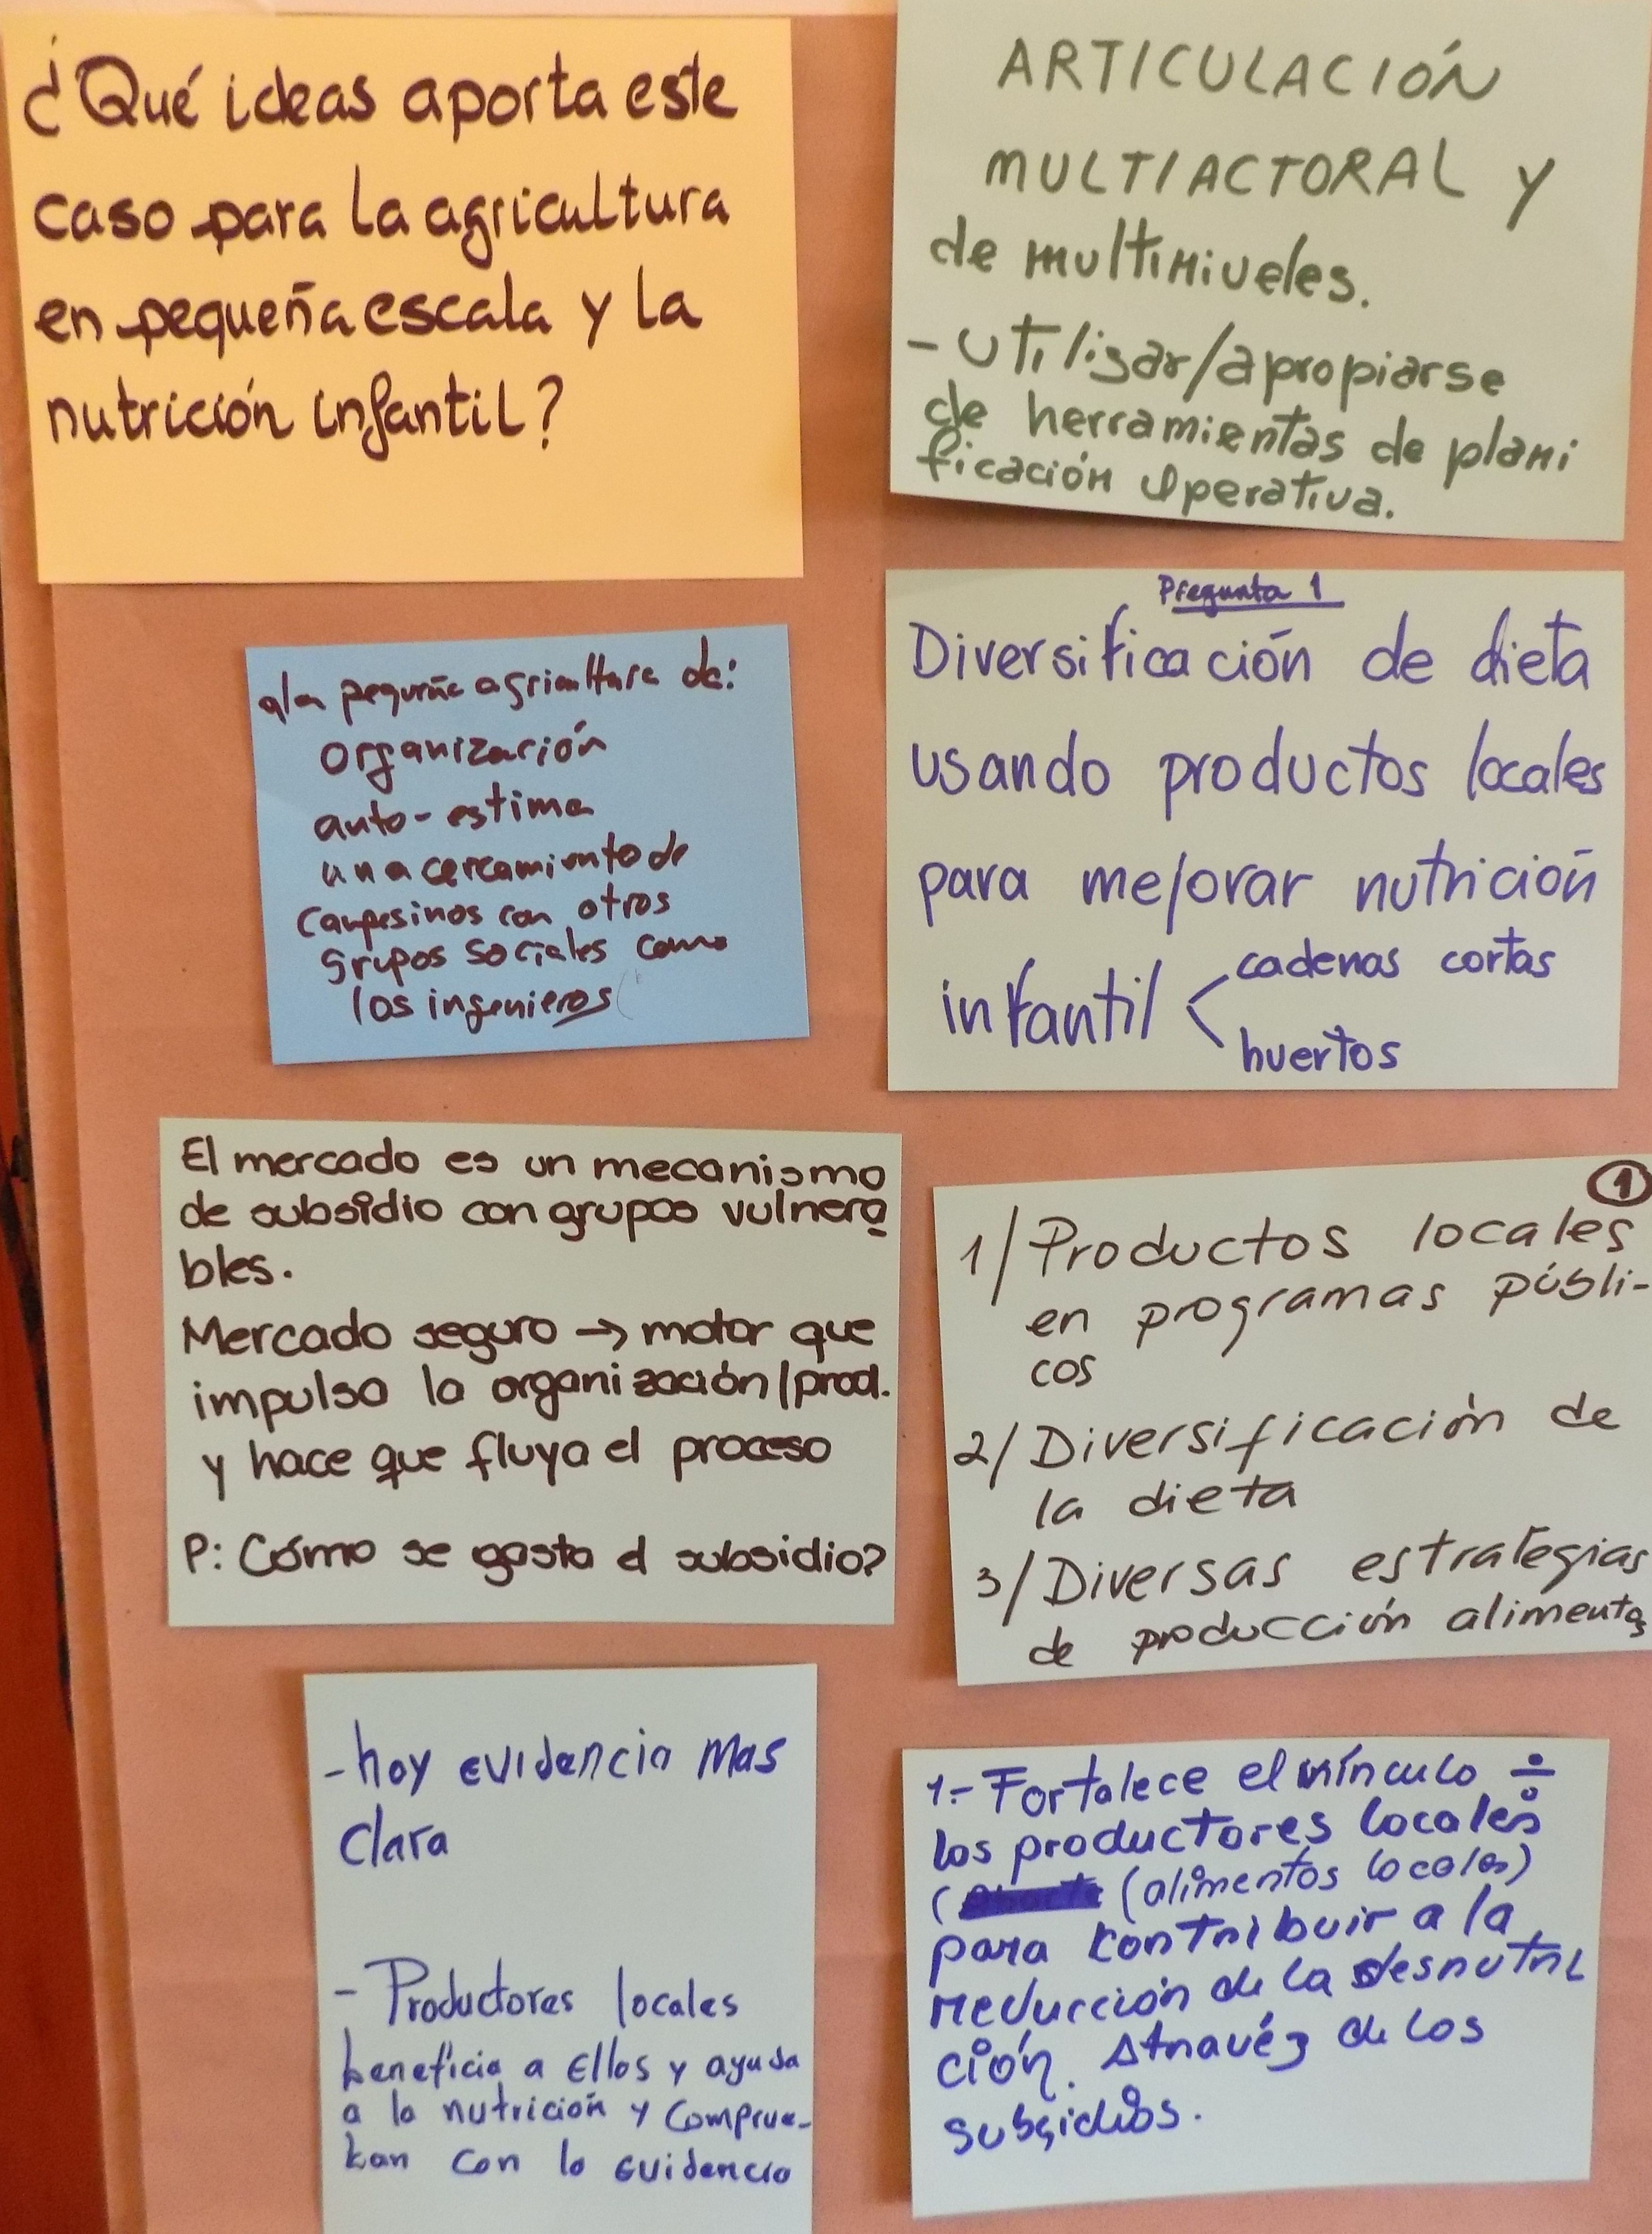 ¿Qué ideas aporta este
caso para la agricultura
en pequeña escala y la
nutrición infantil?
ARTICULACIÓN
MULTIACTORAL y
de multiniveles.
- Utilisar/apropiarse
de herramientas de plani
ficación operativa.
a la pequeña agricultura da:
organización
auto-estima
un acercamiento de
campesinos con otros
grupos sociales como
los ingenieros
Pregunta 1
Diversificación de dieta
usando productos locales
para mejorar nutrición
infantil < cadenas cortas
huertos
El mercado es un mecanismo
de subsidio con grupos vulnera
bles.
Mercado seguro → motor que
impulsa la organización/prod.
y hace que fluya el proceso
P: Cómo se gasta el subsidio?
1
1/ Productos locales
en programas públi-
cos
2/ Diversificación de
la dieta
3/ Diversas estrategias
de producción alimentos
- hay evidencia mas
clara
- Productores locales
beneficia a Ellos y ayuda
a la nutrición y comprue-
ban con la evidencia
1.- Fortalece el vínculo ÷
los productores locales
( (alimentos locales)
para contribuir a la
reducción de la desnutri
ción. Atravéz de los
subsidios.